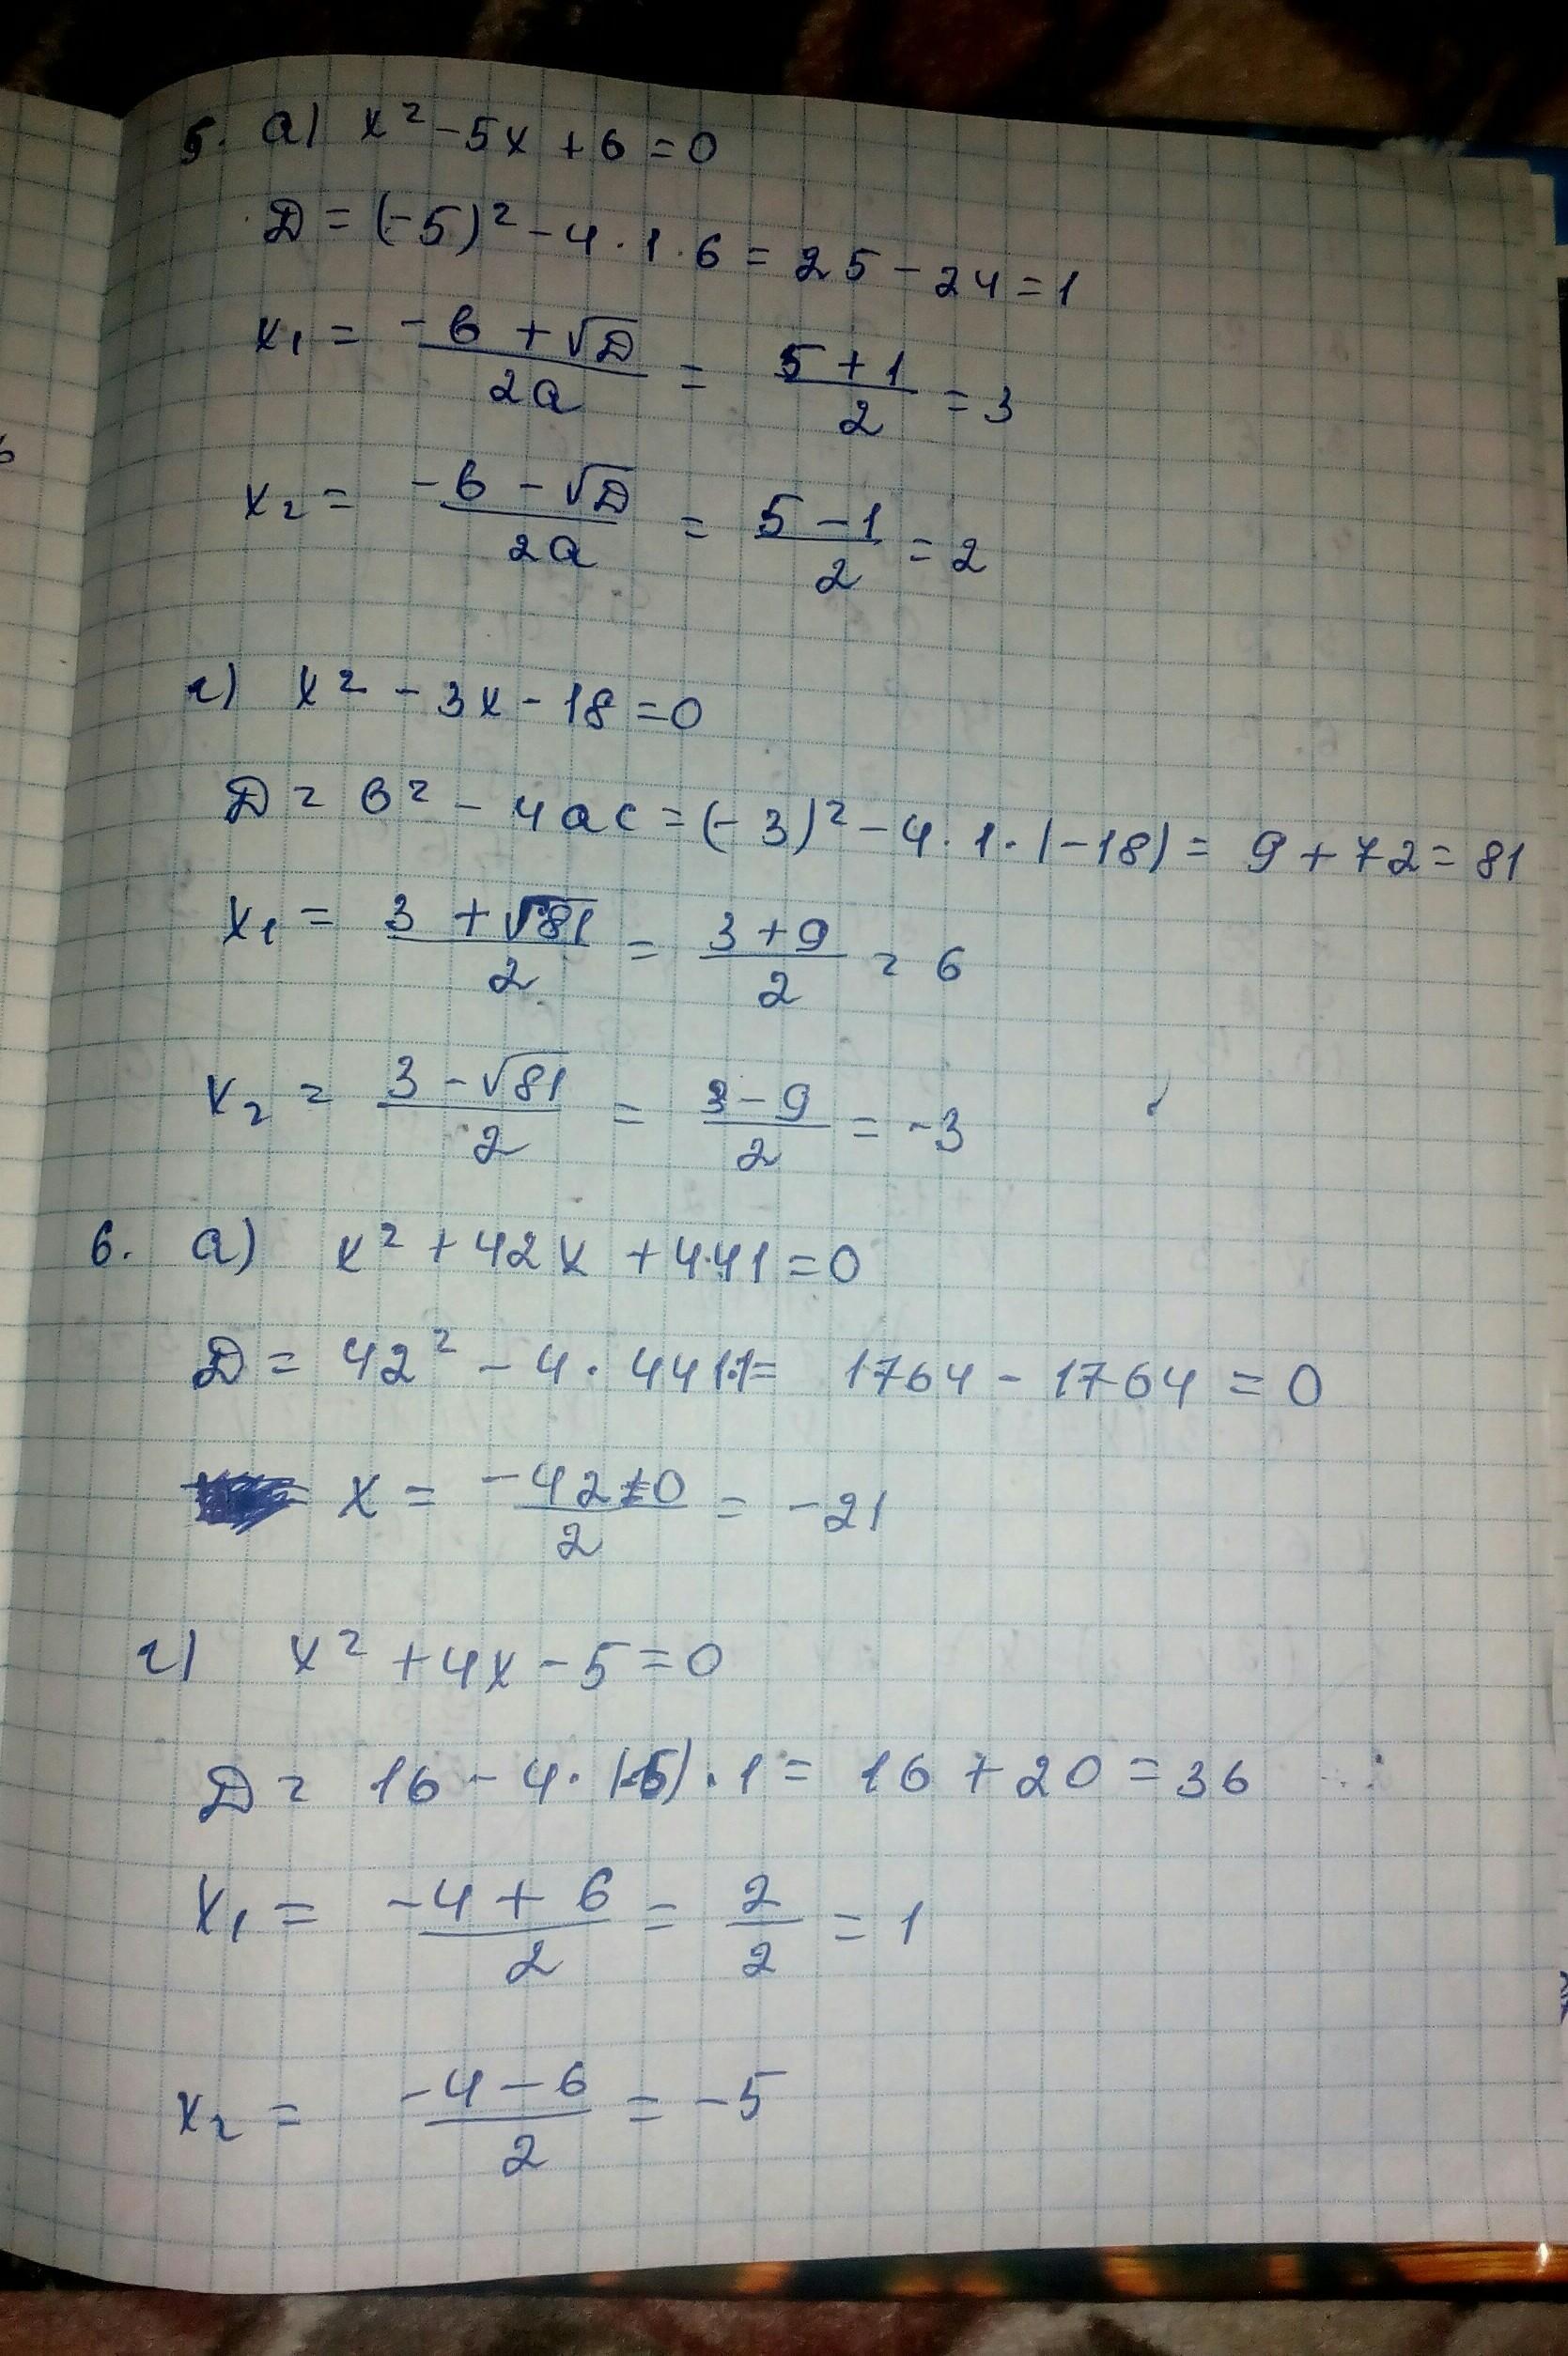 5. а) x² - 5x + 6 = 0
D = (-5)² - 4 · 1 · 6 = 25 - 24 = 1
x₁ = (-в + √D)/2a = (5 + 1)/2 = 3
x₂ = (-в - √D)/2a = (5 - 1)/2 = 2
г) x² - 3x - 18 = 0
D = в² - 4ac = (-3)² - 4 · 1 · (-18) = 9 + 72 = 81
x₁ = (3 + √81)/2 = (3 + 9)/2 = 6
x₂ = (3 - √81)/2 = (3 - 9)/2 = -3
6. а) x² + 42x + 441 = 0
D = 42² - 4 · 441·1 = 1764 - 1764 = 0
x = (-42 ± 0)/2 = -21
г) x² + 4x - 5 = 0
D = 16 - 4 · (-5) · 1 = 16 + 20 = 36
x₁ = (-4 + 6)/2 = 2/2 = 1
x₂ = (-4 - 6)/2 = -5